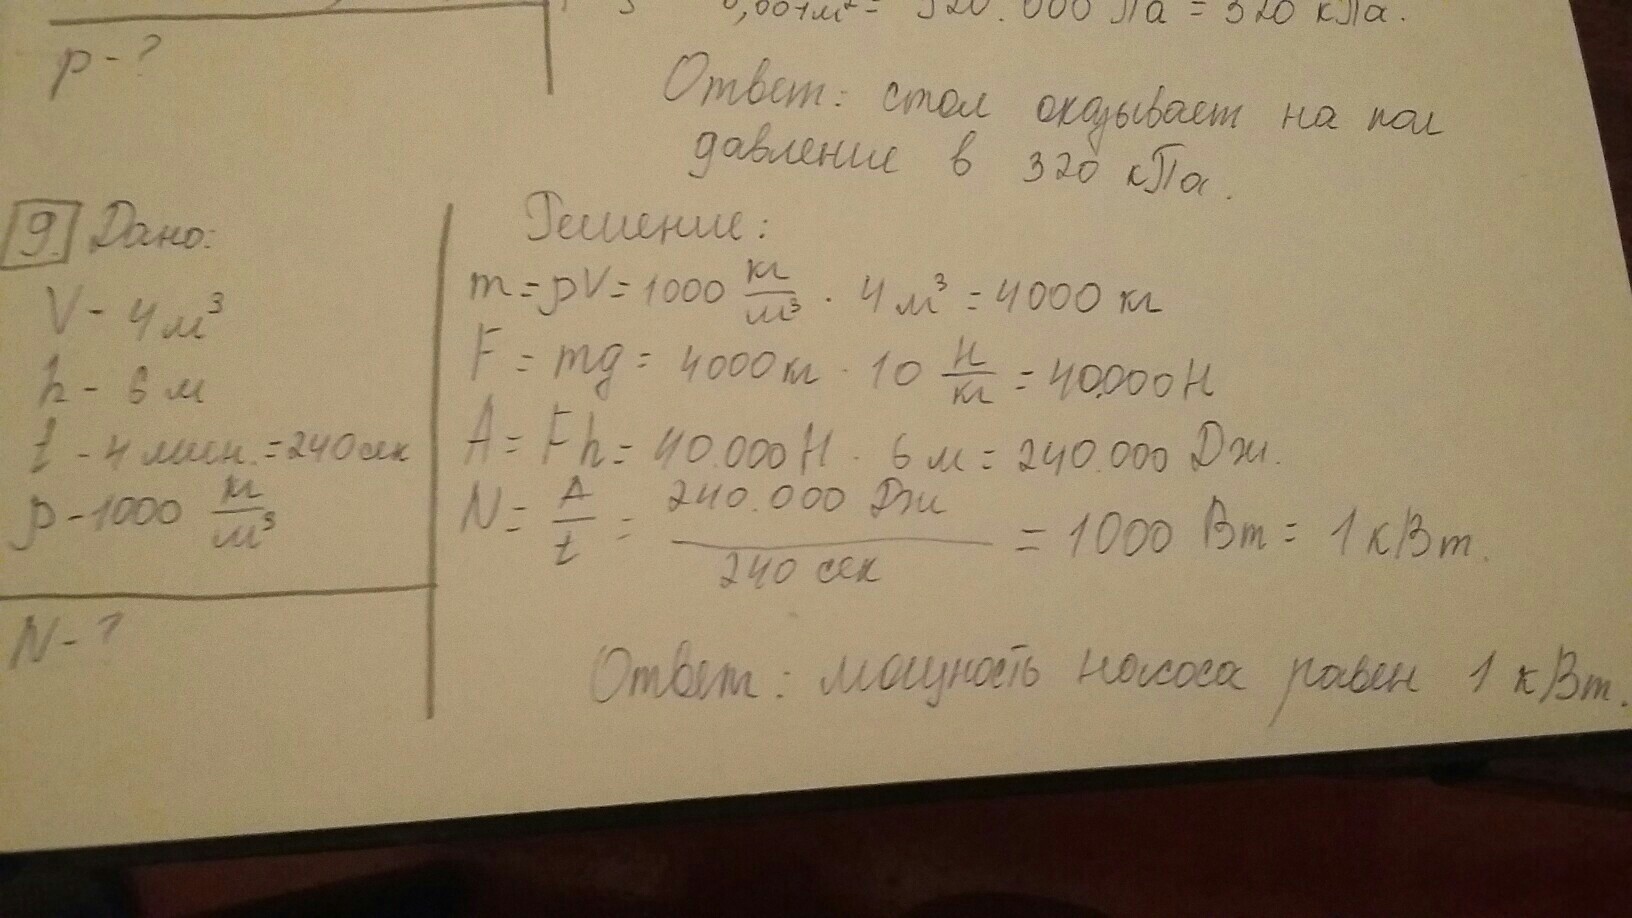 0,001м² = 320.000 Па = 320 кПа.
p - ?
Ответ: стол оказывает на пол
давление в 320 кПа.
9. Дано:
V - 4 м³
h - 6 м
t - 4 мин. = 240 сек
ρ - 1000 кг/м³
N - ?
Решение:
m = ρV = 1000 кг/м³ · 4 м³ = 4000 кг
F = mg = 4000 кг · 10 Н/кг = 40.000 Н
A = Fh = 40.000 Н · 6 м = 240.000 Дж.
N = A/t = 240.000 Дж / 240 сек = 1000 Вт = 1 кВт.
Ответ: мощность насоса равен 1 кВт.